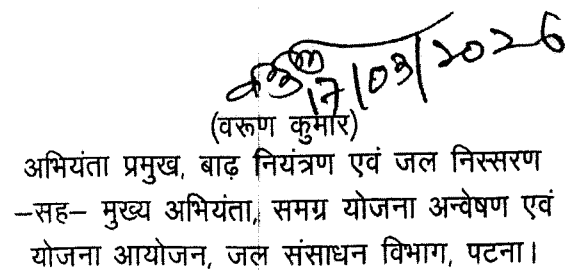 17/03/2026
(वरूण कुमार)
अभियंता प्रमुख, बाढ़ नियंत्रण एवं जल निस्सरण
-सह- मुख्य अभियंता, समग्र योजना अन्वेषण एवं
योजना आयोजन, जल संसाधन विभाग, पटना।